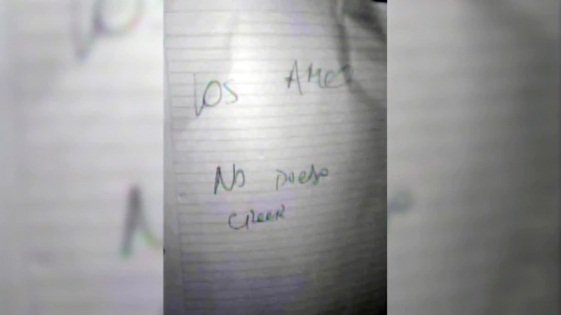 LOS
No Puedo
CREER